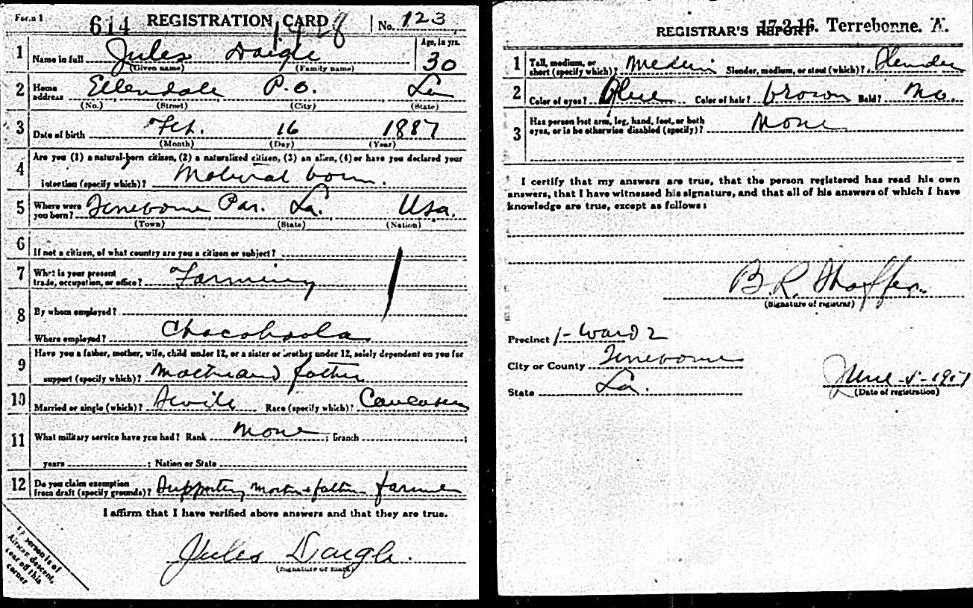 Form 1
614 REGISTRATION CARD 1428 No. 123
1 Name in full Jules Daigle Age, in yrs. 30
(Given name) (Family name)
2 Home address Ellendale P.O. La
(No.) (Street) (City) (State)
3 Date of birth Feb. 16 1887
(Month) (Day) (Year)
4 Are you (1) a natural-born citizen, (2) a naturalized citizen, (3) an alien, (4) or have you declared your
intention (specify which)? Natural born.
5 Where were you born? Terrebonne Par. La. Usa.
(Town) (State) (Nation)
6 If not a citizen, of what country are you a citizen or subject?
7 What is your present trade, occupation, or office? Farming
8 By whom employed?
Where employed?
9 Have you a father, mother, wife, child under 12, or a sister or brother under 12, solely dependent on you for
support (specify which)? Mother and father
10 Married or single (which)? Race (specify which)? Caucasian
11 What military service have you had? Rank None ; Branch ;
years ; Nation or State
12 Do you claim exemption from draft (specify grounds)? Supporting mother & father farmer
I affirm that I have verified above answers and that they are true.
Jules Daigle.
(Signature or mark)
If person is of African descent, tear off this corner
17-3-16. Terrebonne. A.
REGISTRAR'S REPORT
1 Tall, medium, or short (specify which)? Medium Slender, medium, or stout (which)? Slender
2 Color of eyes? Blue Color of hair? brown Bald? No
3 Has person lost arm, leg, hand, foot, or both eyes, or is he otherwise disabled (specify)? None
I certify that my answers are true, that the person registered has read his own
answers, that I have witnessed his signature, and that all of his answers of which I have
knowledge are true, except as follows:
B. R. Shaffer.
(Signature of registrar)
Precinct 1-Ward 2
City or County Terrebonne
State La.
June 5-1917
(Date of registration)